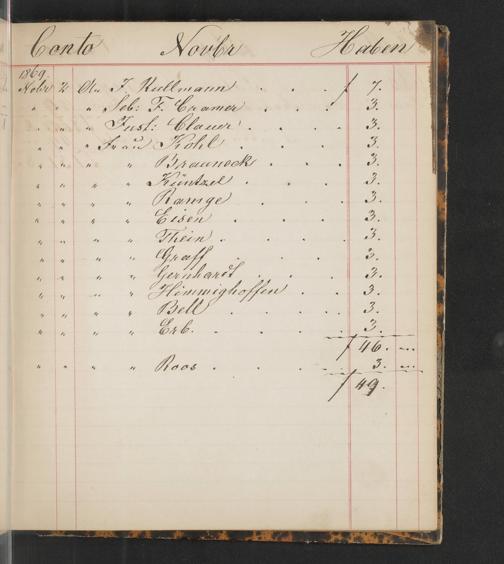 Conto Novbr Haben
1869.
Novbr " J. Kullmann . . . ƒ 7.
" " " Seb: F. Cramer . . . 3.
" " " Just: Clauer . . . . 3.
" " " Frau Kohl . . . . 3.
" " " " Brauneck . . . . 3.
" " " " Küntzel . . . . 3.
" " " " Ramge . . . . 3.
" " " " Eisen . . . . 3.
" " " " Thein . . . . 3.
" " " " Graff . . . . 3.
" " " " Gernhardt . . . . 3.
" " " " Himmighoffen . . 3.
" " " " Bell . . . . 3.
" " " " Erb. . . . . 3.
ƒ 46. "
" " " " Roos . . . . 3. "
ƒ 49.